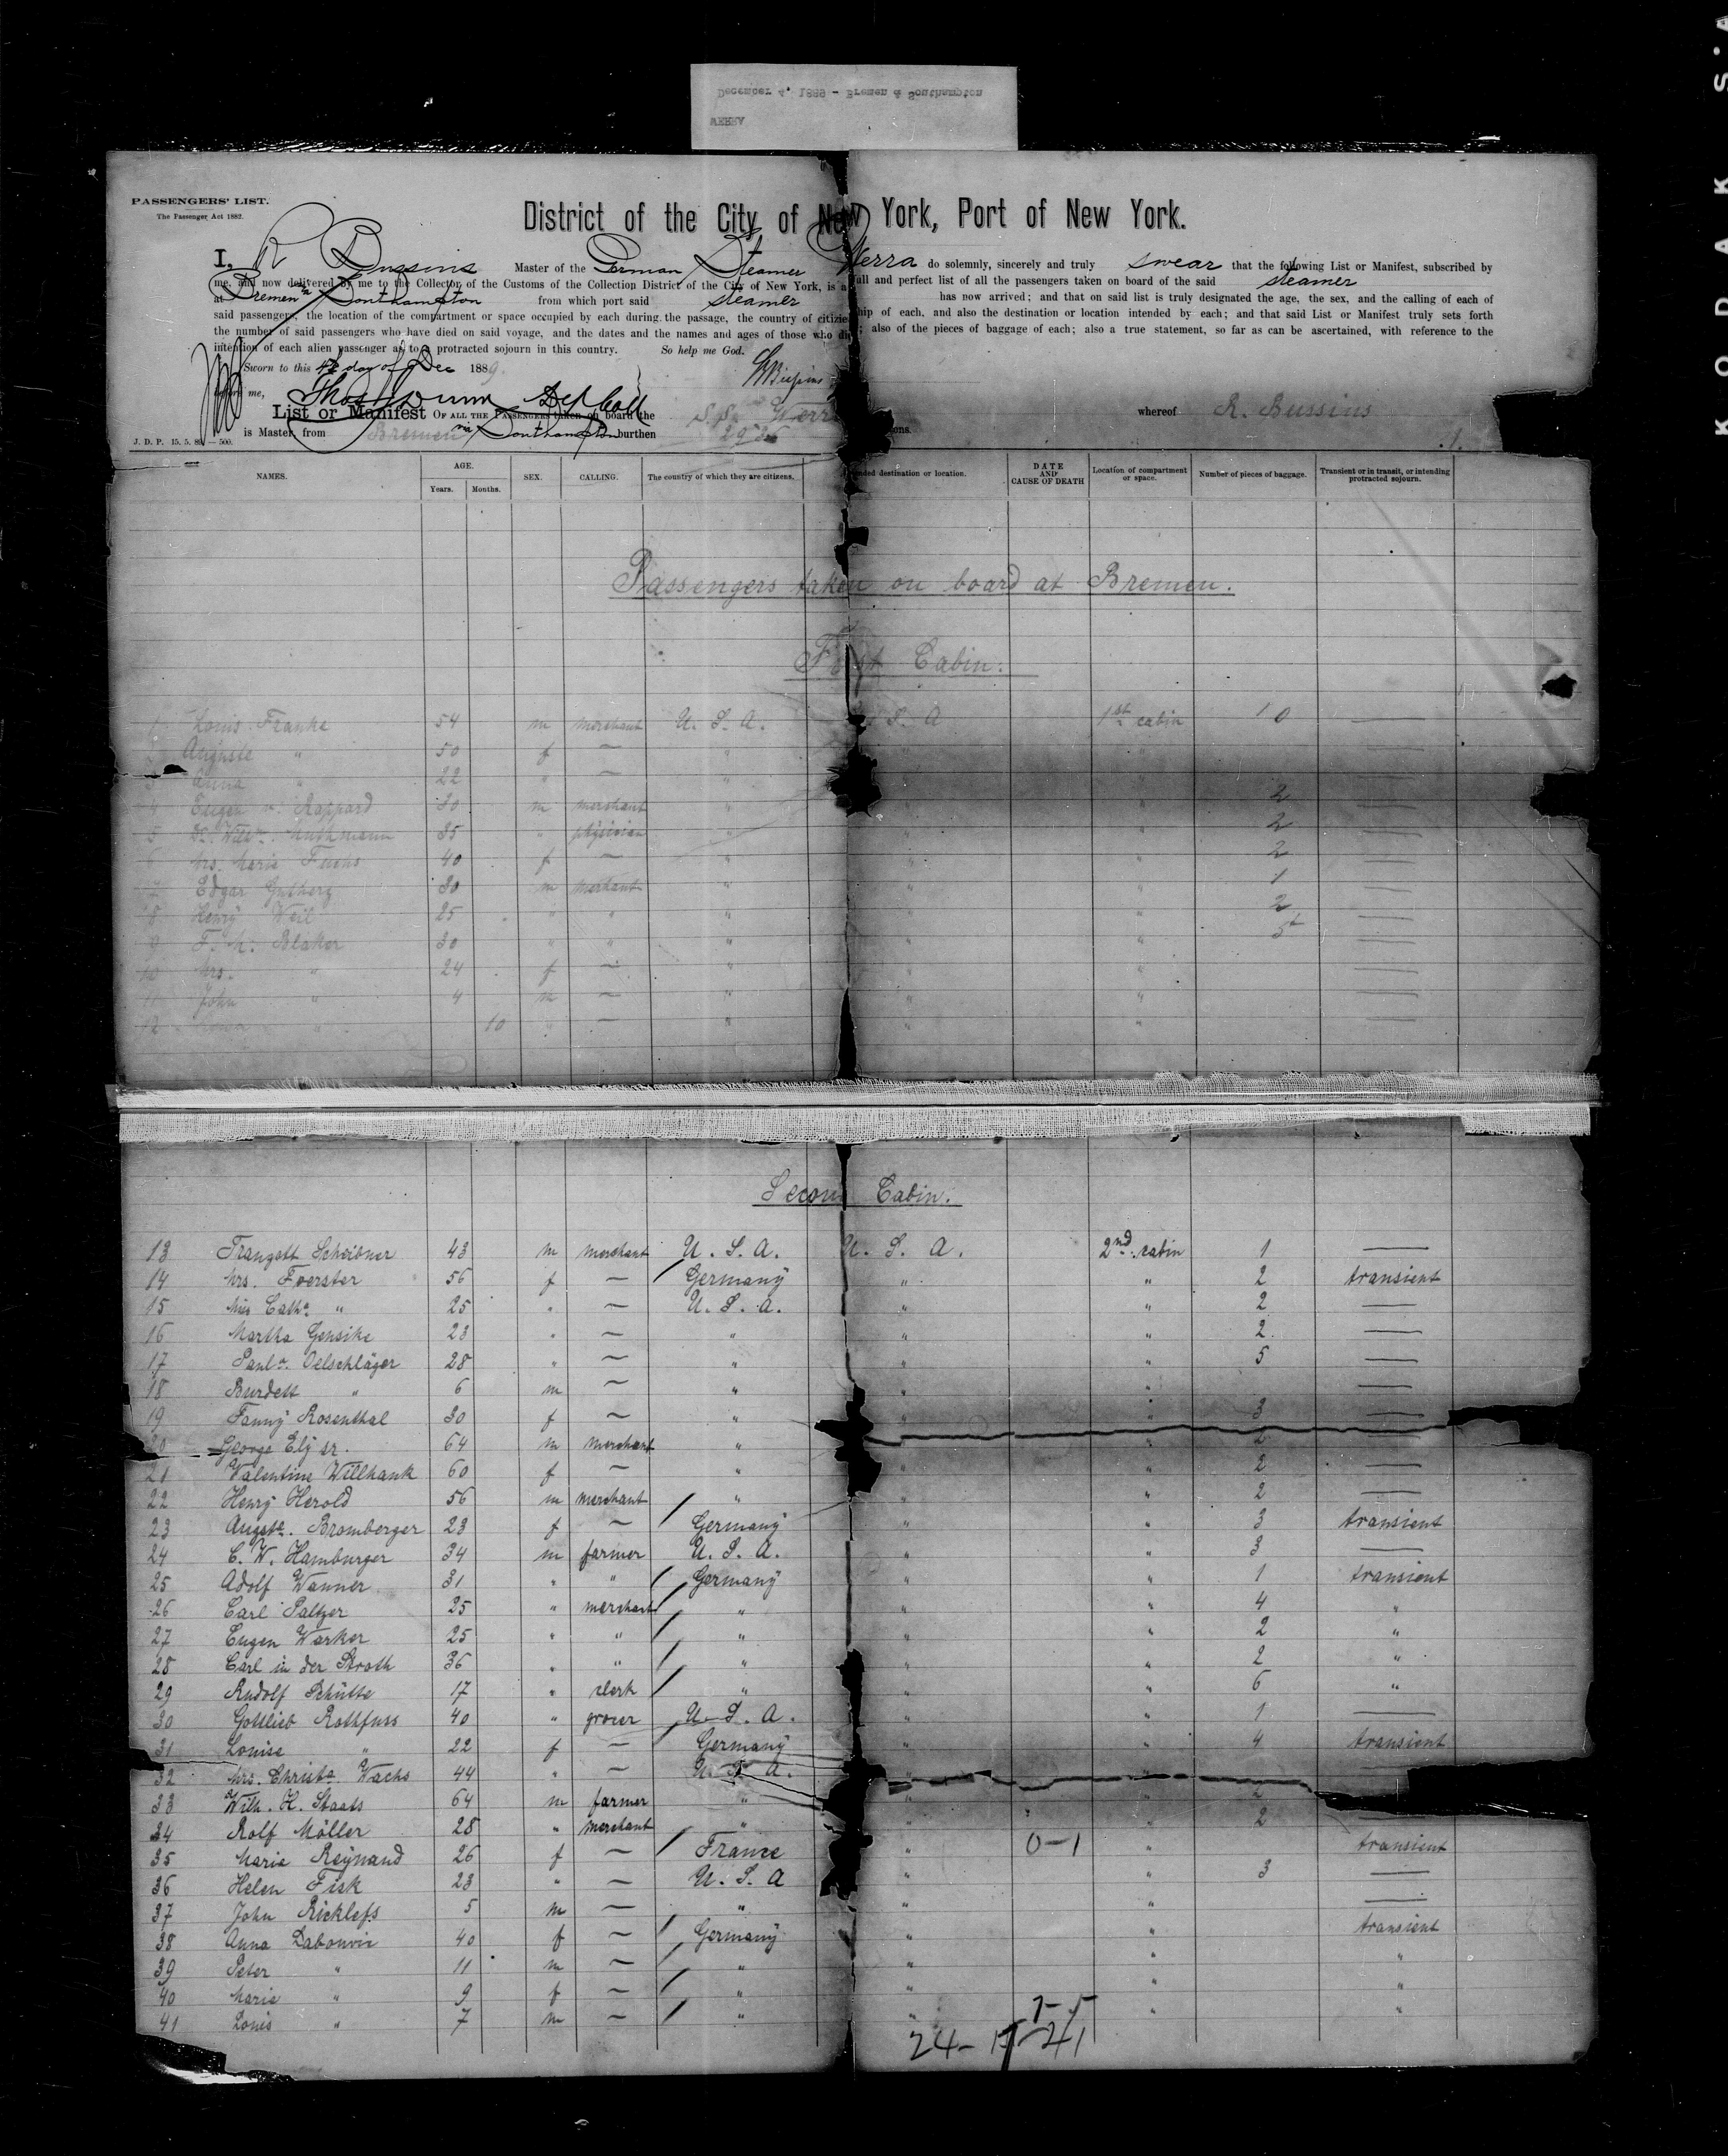 WERRA
December 4, 1889 - Bremen & Southampton
KODAK S·A
PASSENGERS' LIST.
The Passenger Act 1882.
District of the City of New York, Port of New York.
I, R Bussius Master of the German Steamer Werra do solemnly, sincerely and truly swear that the following List or Manifest, subscribed by
me, and now delivered by me to the Collector of the Customs of the Collection District of the City of New York, is a full and perfect list of all the passengers taken on board of the said steamer
at Bremen & Southampton from which port said steamer has now arrived; and that on said list is truly designated the age, the sex, and the calling of each of
said passengers, the location of the compartment or space occupied by each during the passage, the country of citizenship of each, and also the destination or location intended by each; and that said List or Manifest truly sets forth
the number of said passengers who have died on said voyage, and the dates and the names and ages of those who died; also of the pieces of baggage of each; also a true statement, so far as can be ascertained, with reference to the
intention of each alien passenger as to a protracted sojourn in this country. So help me God.
Sworn to this 4th day of Dec 1889
before me, Thos Dunn Dep Coll
List or Manifest OF ALL THE PASSENGERS taken on board the S.S. Werra whereof R. Bussius
is Master, from Bremen via Southampton burthen tons.
J. D. P. 15. 5. 89. — 500. 1.
NAMES. AGE. Years. Months. SEX. CALLING. The country of which they are citizens. Intended destination or location. DATE AND CAUSE OF DEATH Location of compartment or space. Number of pieces of baggage. Transient or in transit, or intending protracted sojourn.
Passengers taken on board at Bremen.
First Cabin.
1 Louis Franke 54 m merchant U. S. A. U. S. A 1st cabin 10 —
2 Auguste " 50 f — " " —
3 Anna " 22 " — "
4 Eugen v. Rappard 30 m merchant " " 2 —
5 Dr. Wilh. Muthmann 35 " physician " 2 —
6 Mrs. Marie Fuchs 40 f — " " " 2 —
7 Edgar Gutherz 30 m merchant " " " 1 —
8 Henry Weil 25 " " " " 2 —
9 F. M. Blaker 30 " " " " " 5 —
10 Mrs. " 24 f — " " " —
11 John " 4 m — " " " —
12 " 10 " — " " " —
Second Cabin.
13 Traugott Scheibner 43 m merchant U. S. A. U. S. A. 2nd cabin 1 —
14 Mrs. Foerster 56 f — Germany " " 2 transient
15 Miss Cathe " 25 " — U. S. A. " " 2 —
16 Martha Gensike 23 " — " " " 2. —
17 Paule. Oelschläger 28 " — " " " 5 —
18 Burdett " 6 m — " " " —
19 Fanny Rosenthal 30 f — " " " 3 —
20 George Ely sr. 64 m merchant " " 2
21 Valentine Willhauk 60 f — " " " 2 —
22 Henry Herold 56 m merchant " " " 2 —
23 Auguste. Bromberger 23 f — Germany " " 3 transient
24 C. W. Hamburger 34 m farmer U. S. A. " " 3 —
25 Adolf Wanner 31 " " Germany " " 1 transient
26 Carl Saltzer 25 " merchant " " " 4 "
27 Eugen Warker 25 " " " " " 2 "
28 Carl in der Stroth 36 " " " " " 2 "
29 Rudolf Schütte 17 " clerk " " " 6 "
30 Gottlieb Rothfuss 40 " grocer U. S. A. " " 1 —
31 Louise " 22 f — Germany " " 4 transient
32 Mrs. Christe. Wachs 44 " — U. S. A. " " —
33 Wilh. H. Staats 64 m farmer " " " 2
34 Rolf Möller 28 " merchant " " " 2
35 Marie Reynaud 26 f — France " 0-1 " transient
36 Helen Fisk 23 " — U. S. A " " 3 —
37 John Ricklefs 5 m — " " " —
38 Anna Dabouvir 40 f — Germany " " transient
39 Peter " 11 m — " " " "
40 Marie " 9 f — " " " "
41 Louis " 7 m — " " " "
7-5
24-17-41